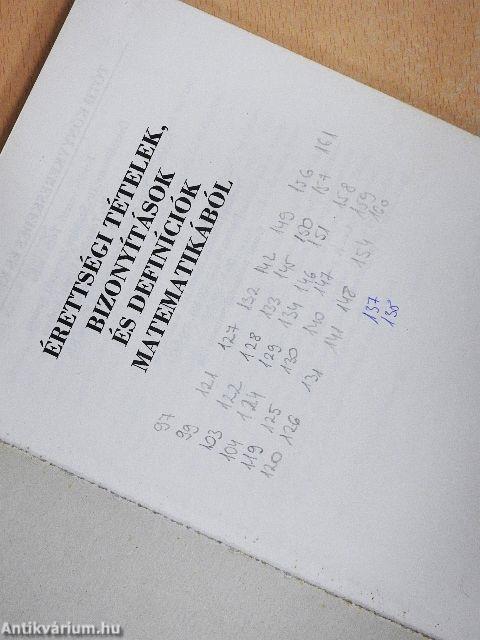 ÉRETTSÉGI TÉTELEK,
BIZONYÍTÁSOK
ÉS DEFINÍCIÓK
MATEMATIKÁBÓL
97 121 127 132 142 149 156 161
99 122 128 133 145 150 157
103 124 129 134 146 151 158
104 125 130 140 147 159
119 126 131 141 148 154 160
120
137
138
Antikvárium.hu